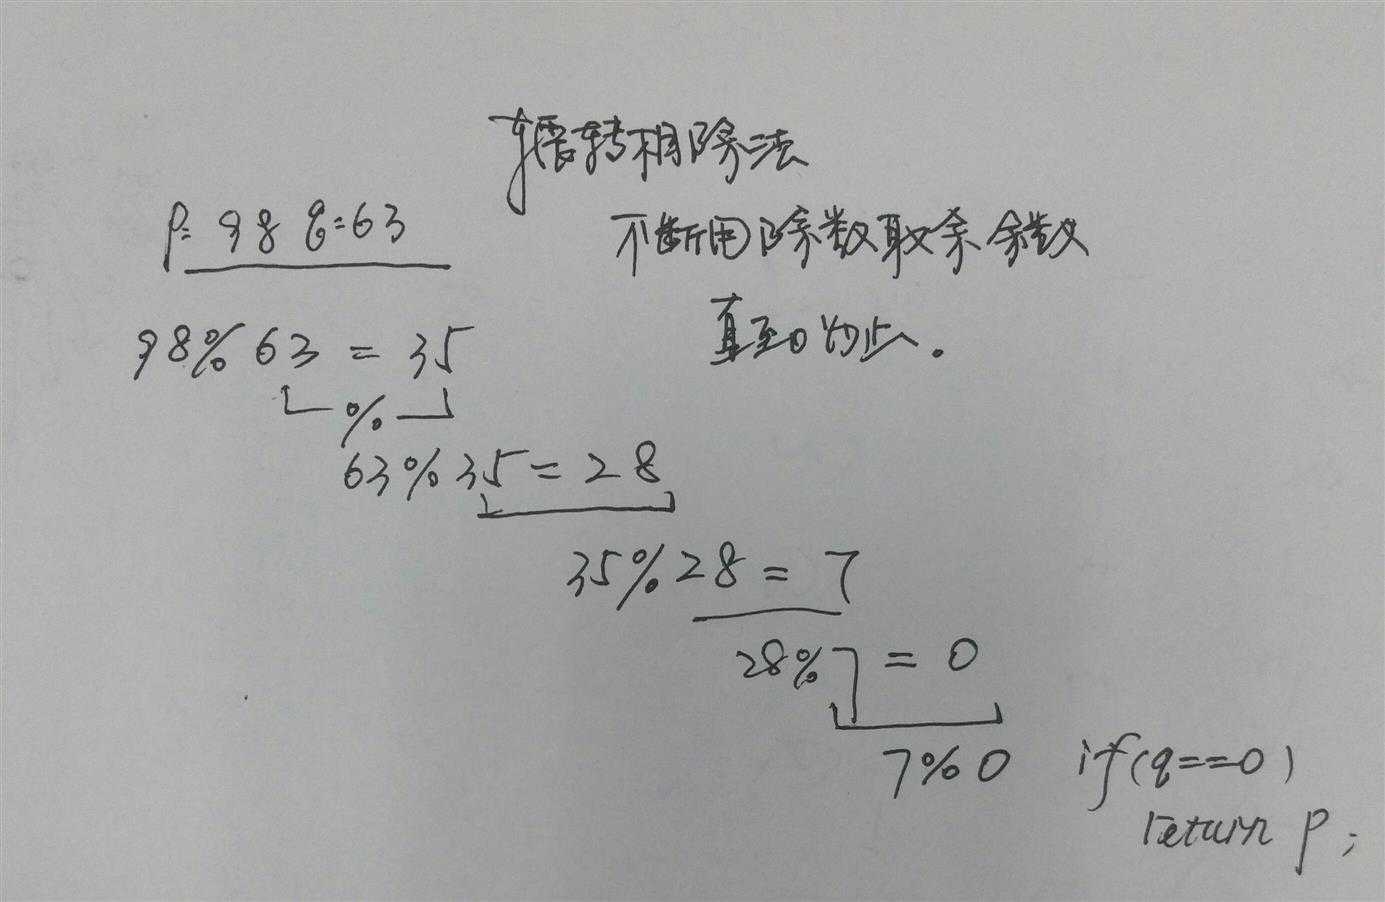 辗转相除法
p=98 q=63
不断用除数取余余数
直至0为止.
98%63=35
%
63%35=28
35%28=7
28%7=0
7%0 if(q==0)
return p;